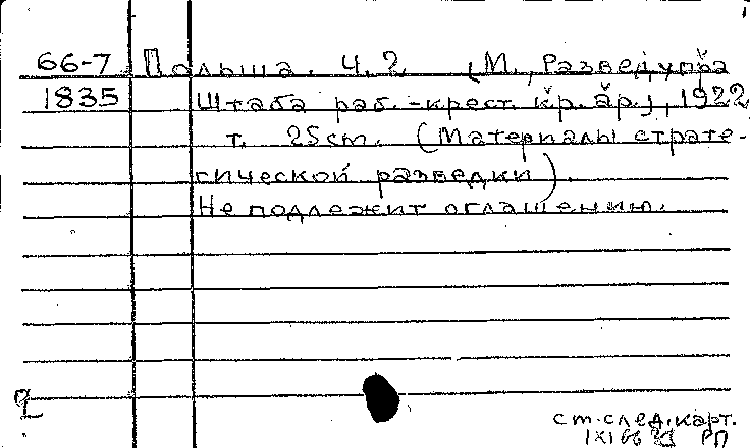 66-7 Польша. Ч. 2 (М., Разведупра
1835 Штаба раб.-крест. кр. ар.), 1922
т. 25 cm. (Материалы страте-
гической разведки).
Не подлежит оглашению.
ст. след. карт.
РП